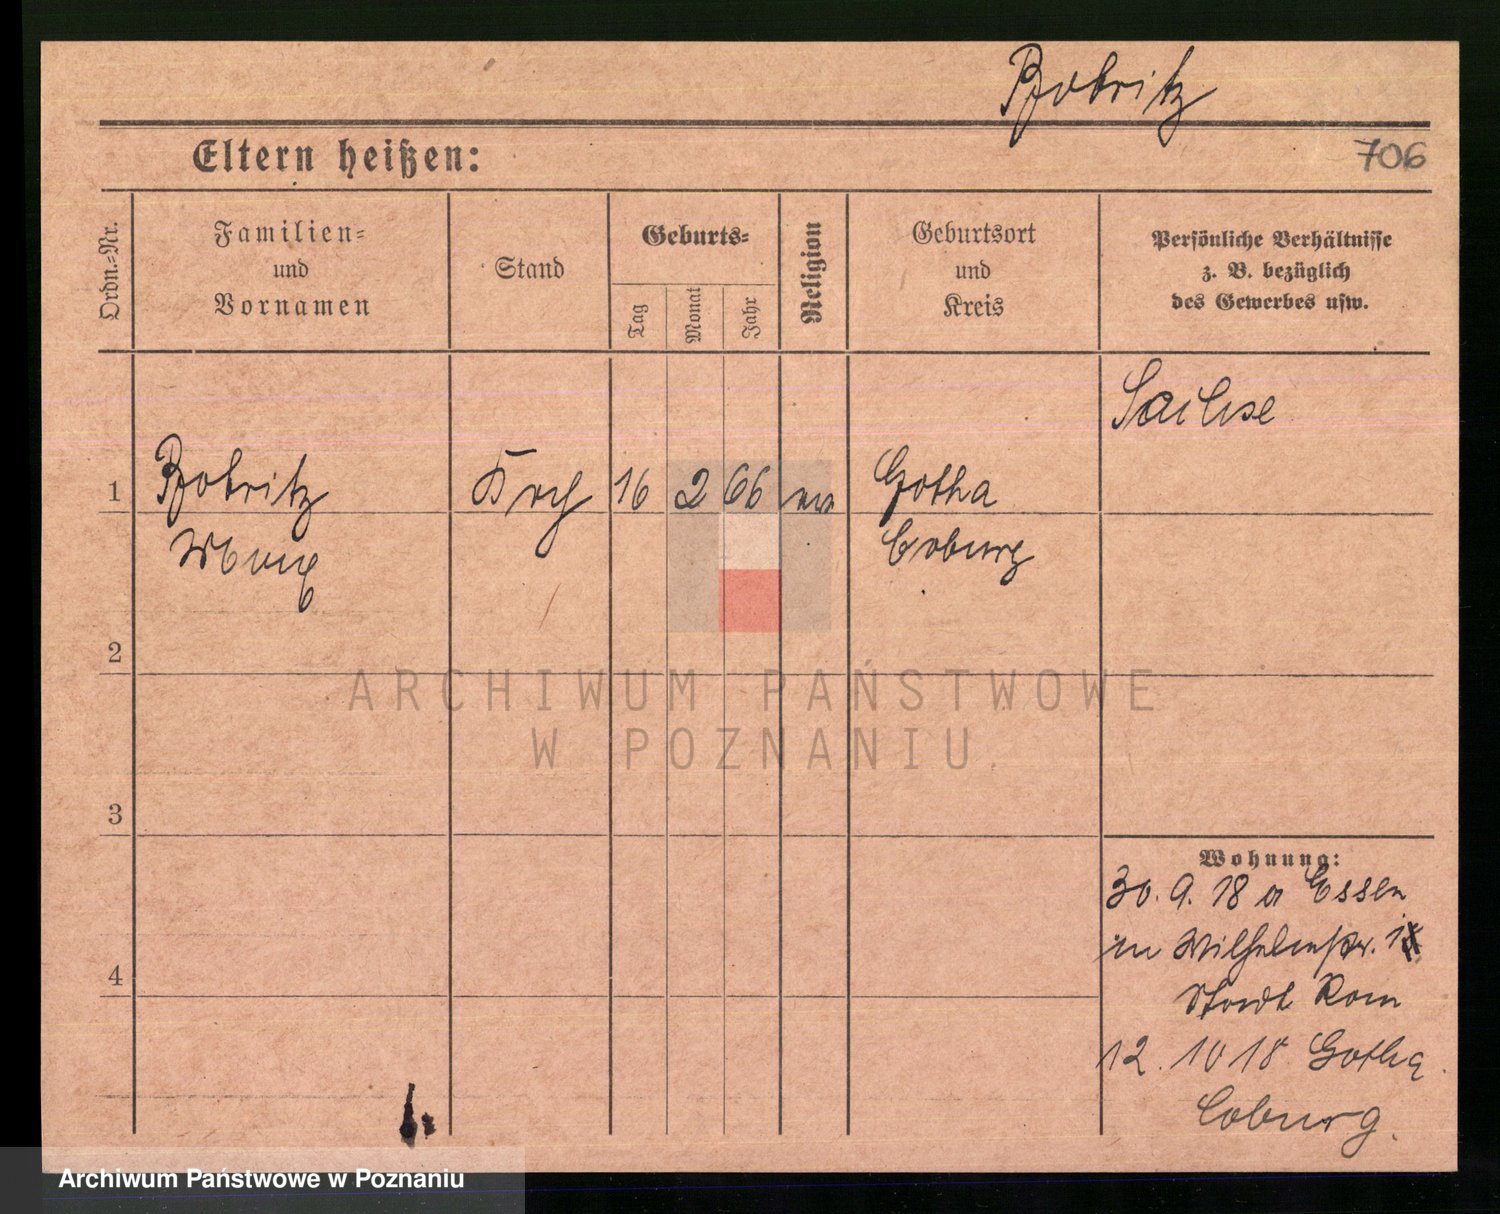 Bobritz
Eltern heißen:
706
Ordn.-Nr.
Familien-
und
Vornamen
Stand
Geburts-
Tag
Monat
Jahr
Religion
Geburtsort
und
Kreis
Persönliche Verhältnisse
z. B. bezüglich
des Gewerbes usw.
Sachse
1
Bobritz
Koch
16
2
66
Gotha
Coburg
2
3
4
Wohnung:
30. 9. 18 a Essen
in Wilhelmstr. 1
Stadt Rom
12. 10 18 Gotha
Coburg.
ARCHIWUM PAŃSTWOWE
W POZNANIU
Archiwum Państwowe w Poznaniu